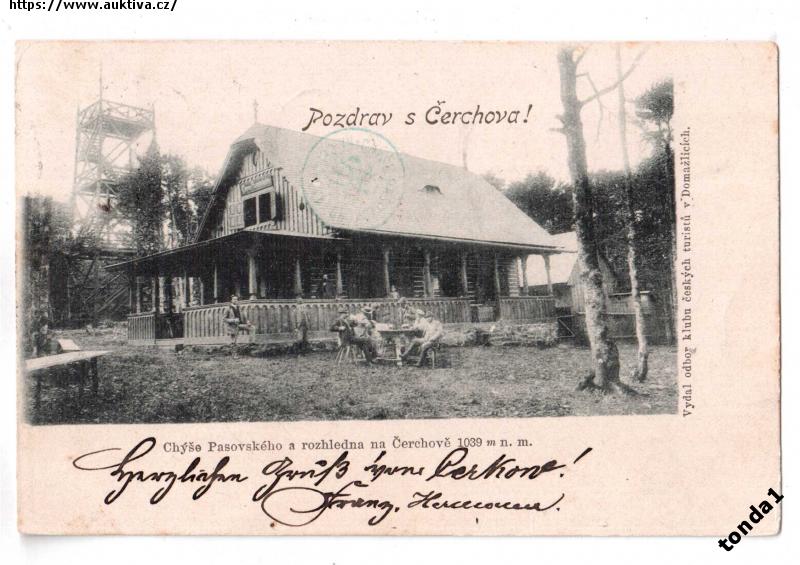 https://www.auktiva.cz/
Pozdrav s Čerchova!
Vydal odbor klubu českých turistů v Domažlicích.
Chýše Pasovského a rozhledna na Čerchově 1039 m n. m.
Herzlichen Gruß vom Cerkow!
Franz Hermann.
tonda1